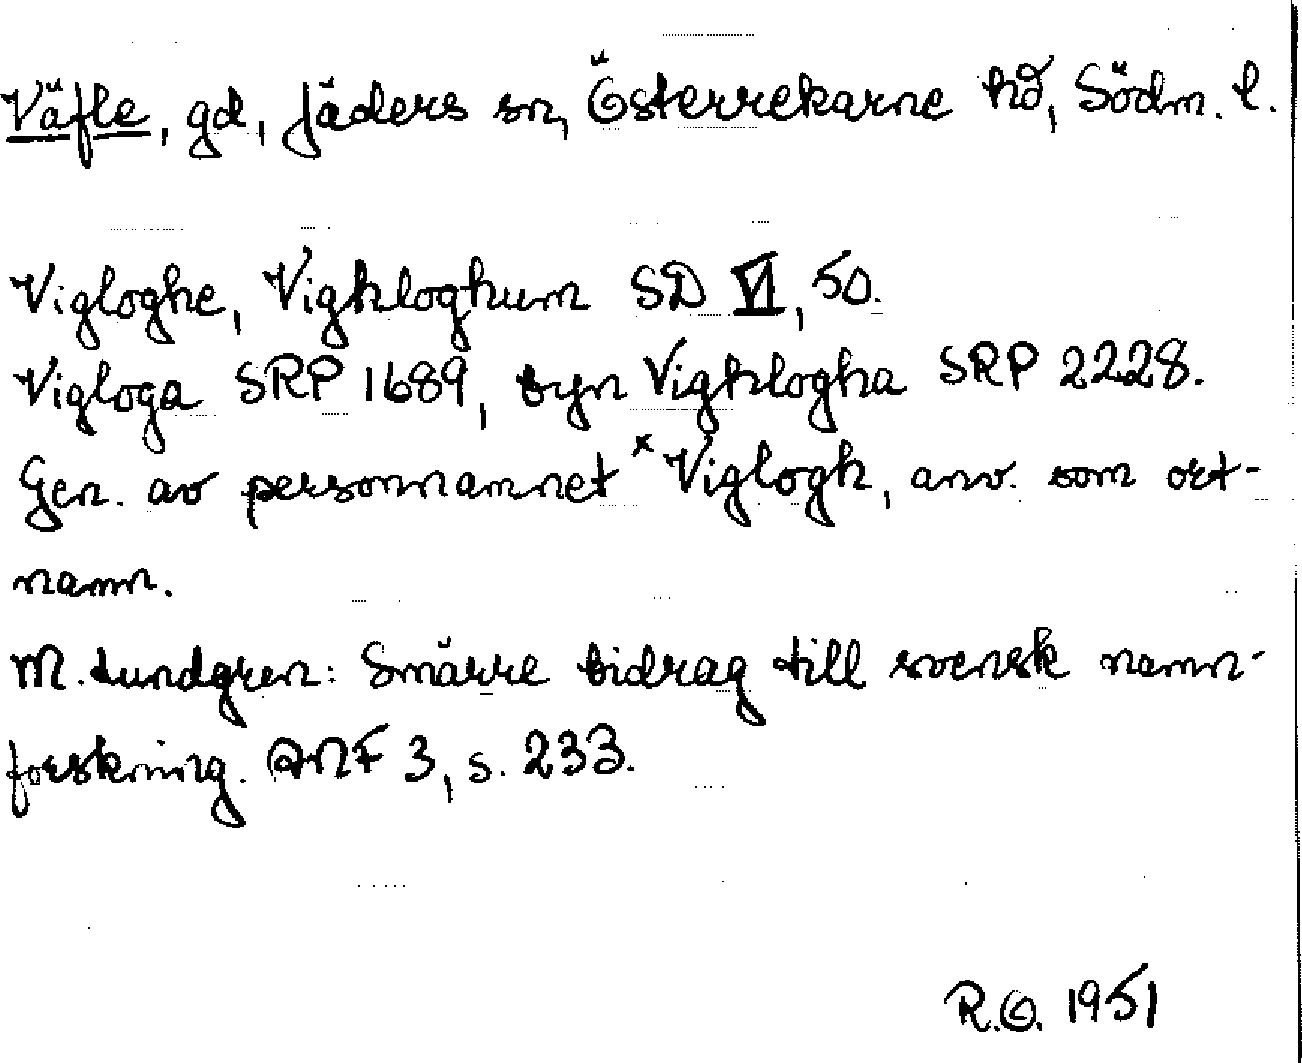 Väfle, gd, Jäders sn, Österrekarne hd, Södm. l.
Vigloghe, Vighloghum SD VI, 50.
Vigloga SRP 1689, byn Vighlogha SRP 2228.
Gen. av personnamnet *Viglogh, anv. som ort-
namn.
M. Lundgren: Smärre bidrag till svensk namn-
forskning. ANF 3, s. 233.
R.O. 1951